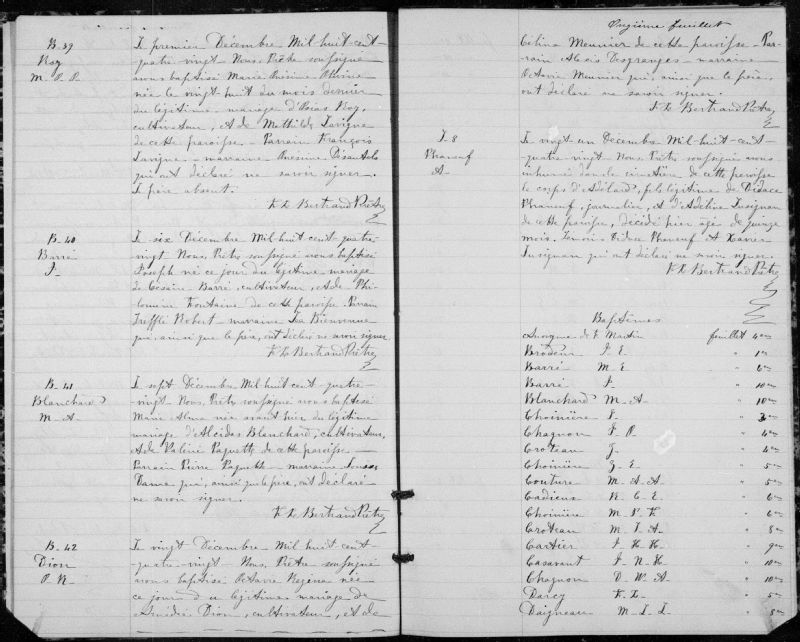 B. 39
Roy
M. O. R.
Le premier Décembre Mil-huit-cent-
quatre-vingt Nous, Prêtre soussigné
avons baptisé Marie
née le vingt-huit du mois dernier
du légitime mariage d'Osias Roy,
cultivateur, et de Mathilde Lavigne
de cette paroisse. Parrain François
Lavigne - marraine
qui ont déclaré ne savoir signer.
Le père absent.
F. X. Bertrand Ptre
B. 40
Barré
J.
Le six Décembre Mil huit cent quatre-
vingt Nous, Prêtre soussigné avons baptisé
Joseph né ce jour du légitime mariage
de Césaire Barré, cultivateur, et de Phi-
lomène Fontaine de cette paroisse. Parrain
Trefflé Robert - marraine Bienvenue
qui, ainsi que le père, ont déclaré ne savoir signer.
F. X. Bertrand Ptre
B. 41
Blanchard
M. A.
Le sept Décembre Mil huit cent quatre-
vingt Nous, Prêtre soussigné avons baptisé
Marie Alma née avant hier du légitime
mariage d'Alcide Blanchard, cultivateur,
et de Valérie Paquette de cette paroisse.
Parrain Pierre Paquette - marraine
Dame qui, ainsi que le père, ont déclaré
ne savoir signer.
F. X. Bertrand Ptre
B. 42
Dion
O. R.
Le vingt Décembre Mil huit cent-
quatre-vingt Nous, Prêtre soussigné
avons baptisé Octavie Regina née
ce jour du légitime mariage de
Dion, cultivateur, et de
Onzième feuillet
Célina Meunier de cette paroisse. Par-
rain Alexis Desgranges - marraine
Octavie Meunier qui, ainsi que le père,
ont déclaré ne savoir signer.
F. X. Bertrand Ptre
S. 8
Phaneuf
A.
Le vingt un Décembre Mil-huit-cent-
quatre-vingt Nous, Prêtre soussigné avons
inhumé dans le cimetière de cette paroisse
le corps d'Adélard, fils légitime de Didace
Phaneuf, journalier, et d'Adéline Lusignan
de cette paroisse, décédé hier âgé de quinze
mois. Témoins Didace Phaneuf et Xavier
Lusignan qui ont déclaré ne savoir signer.
F. X. Bertrand Ptre
Baptêmes
Anonyme de F. Martin feuillet 4me
Brodeur J. E. " 1er
Barré M. E. " 6me
Barré J. " 10me
Blanchard M. A. " 10me
Choinière J. " 3me
Chagnon J. O. " 4me
Croteau J. " 4me
Choinière J. E. " 5me
Couture M. A. A. " 5me
Cadieux R. C. E. " 6me
Choinière M. P. R. " 6me
Croteau M. L. A. " 8me
Cartier J. H. H. " 9me
Casavant J. N. H. " 10me
Chagnon D. W. A. " 10me
Darcy F. X. " 5me
Daigneau M. L. L. " 8me